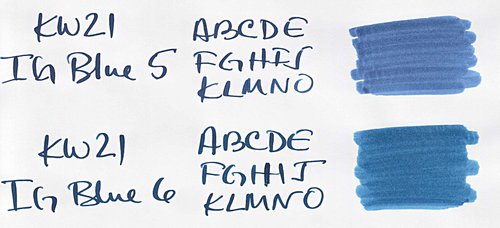 KW21
IG Blue 5
ABCDE
FGHIJ
KLMNO
KW21
IG Blue 6
ABCDE
FGHIJ
KLMNO